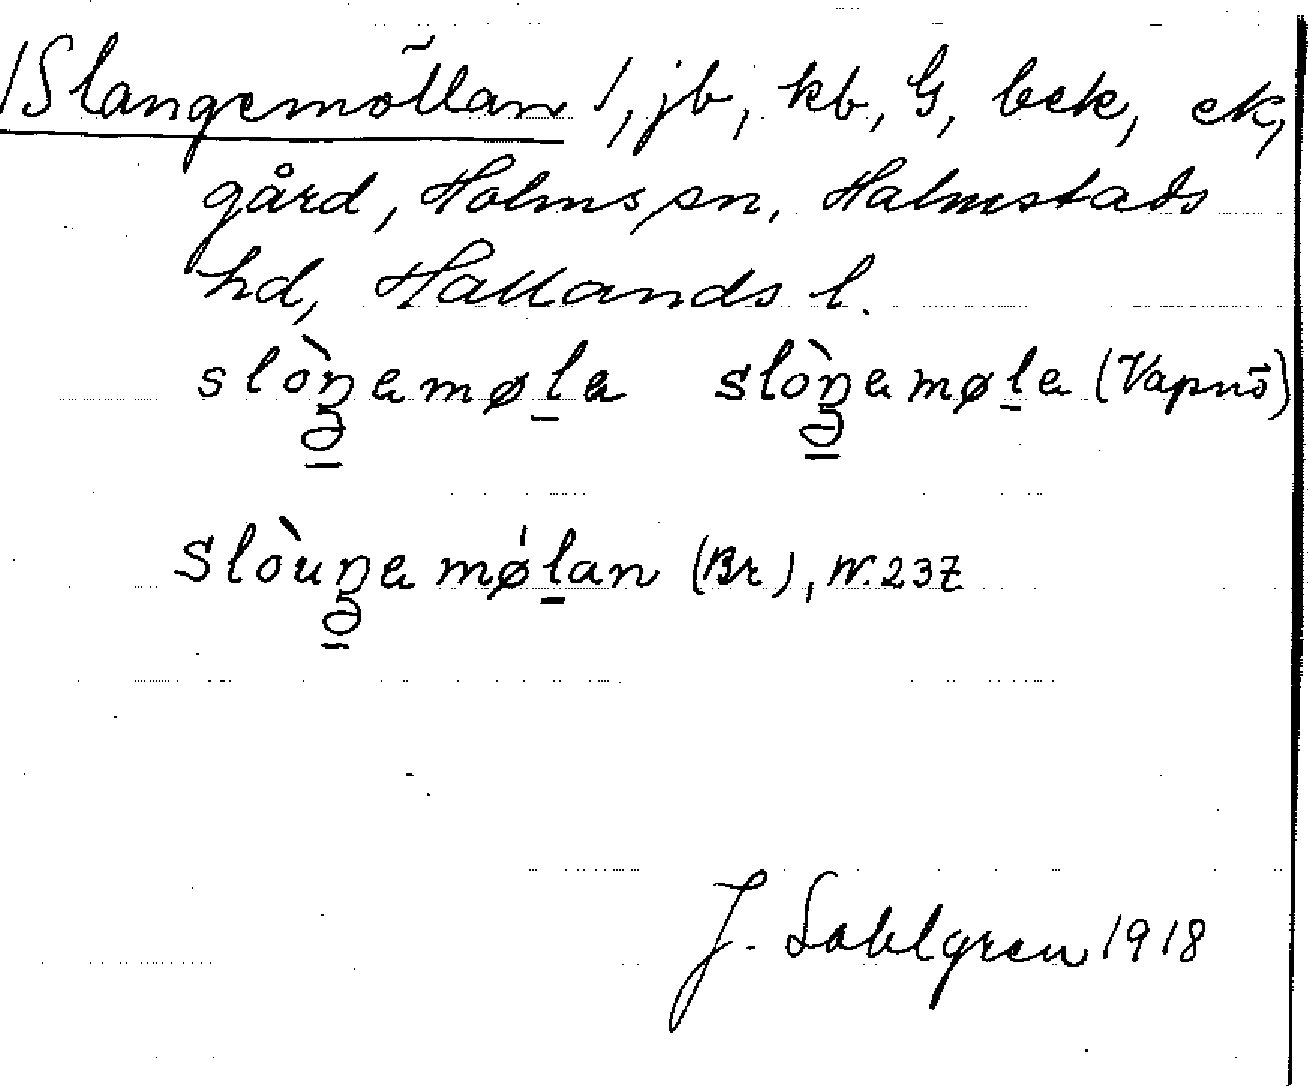 /Slangemöllan /, jb, kb, G, bek, ek,
gård, Holms sn, Halmstads
hd, Hallands l.
slòŋ̱əmøḻa slòŋ̱əmøḻa (Vapnö)
slòuŋ̱əmǿḻan (Br), W. 237
J. Sahlgren 1918